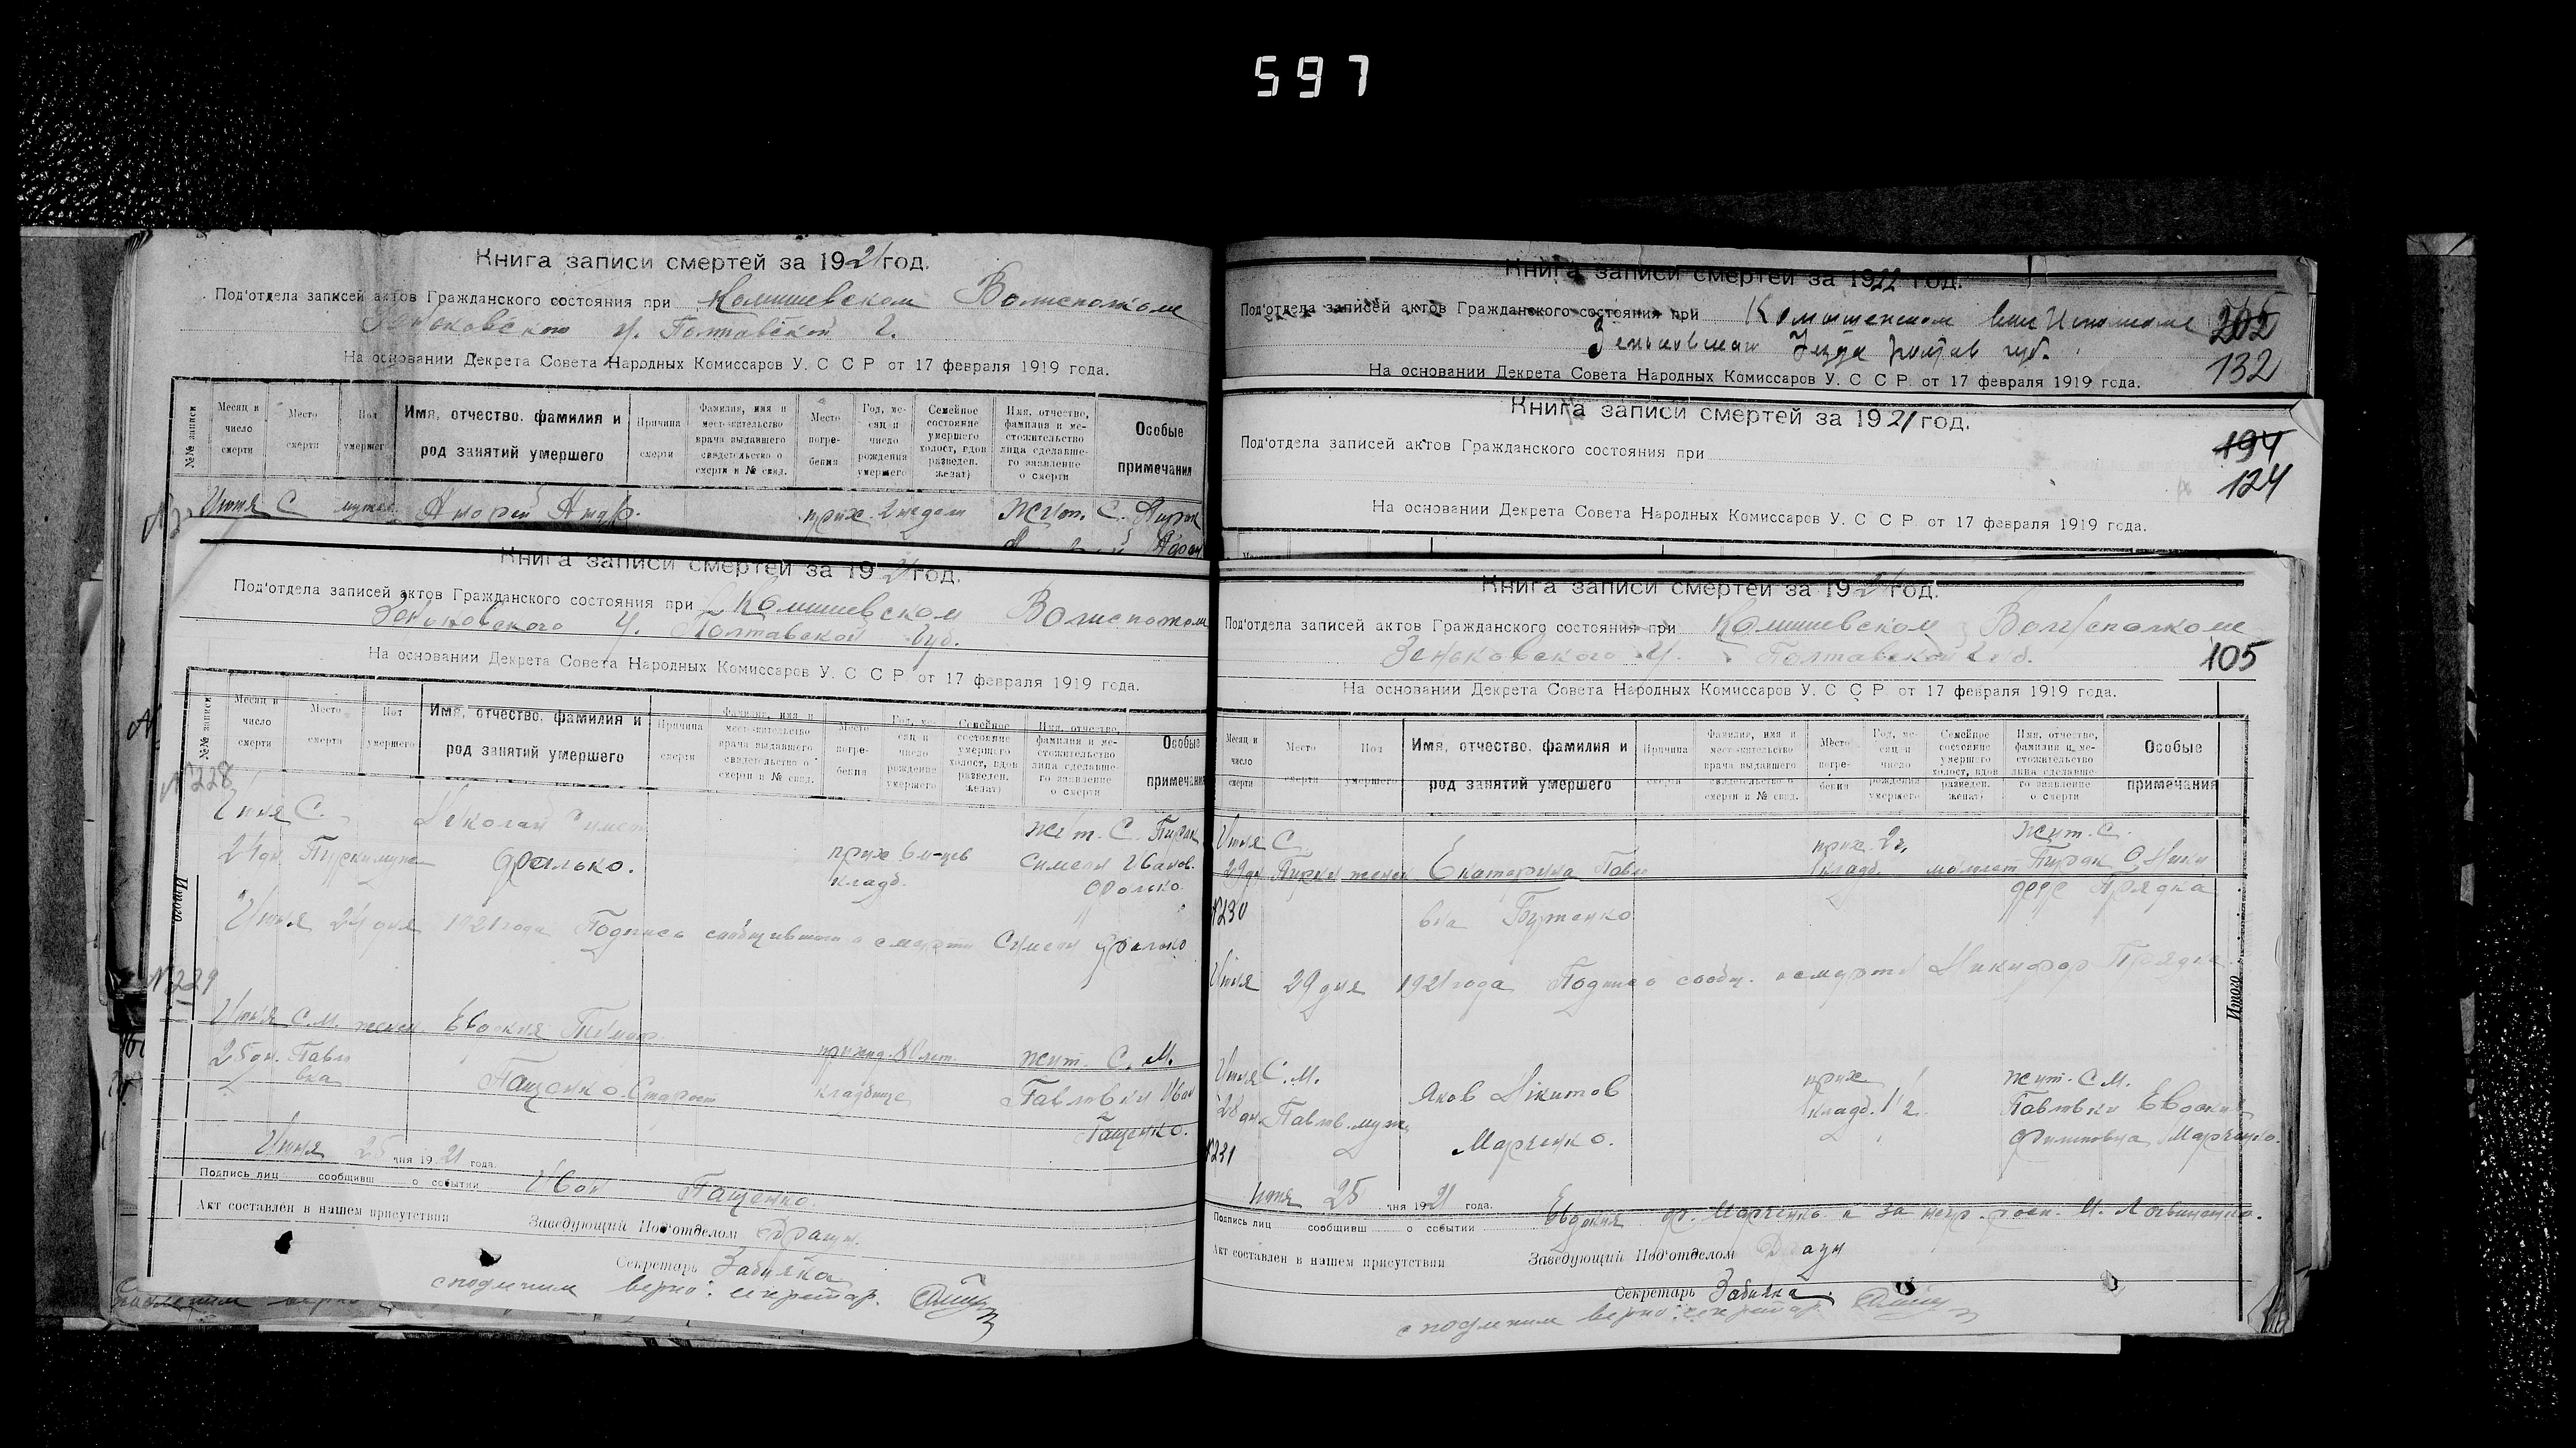 597
Книга записи смертей за 1921 год.
Под'отдела записей актов Гражданского состояния при Комишевском Волисполкоме
Зеньковского У. Полтавской Г.
На основании Декрета Совета Народных Комиссаров У. С С Р от 17 февраля 1919 года.
№№ записи
Месяц и число смерти
Место смерти
Пол умершего
Имя, отчество, фамилия и род занятий умершего
Причина смерти
Фамилия, имя и местожительство врача выдавшего свидетельство о смерти и № свид.
Место погребения
Год, месяц и число рождения умершего
Семейное состояние умершего холост, вдов разведен. женат)
Имя, отчество, фамилия и местожительство лица сделавшего заявление о смерти
Особые примечания
Июня С мужес. Андрей Андр. прих. 2 недели Жит. С.
Книга записи смертей за 1921 год.
Под'отдела записей актов Гражданского состояния при Комишевском Волисполком
Зеньковского У. Полтавской губ.
На основании Декрета Совета Народных Комиссаров У. С С Р от 17 февраля 1919 года.
№№ записи
Месяц и число смерти
Место смерти
Пол умершего
Имя, отчество, фамилия и род занятий умершего
Причина смерти
Фамилия, имя и местожительство врача выдавшего свидетельство о смерти и № свид.
Место погребения
Год, месяц и число рождения умершего
Семейное состояние умершего холост, вдов разведен. женат)
Имя, отчество, фамилия и местожительство лица сделавшего заявление о смерти
Особые примечания
№228
Июня С. Николай Симео жит. С. Пирок
24 дн. Пирки муж Фролько. прих 6 м-цев Симеон Иванов.
кладб. Фролько.
Итого
Июня 24 дня 1921 года Подпись сообщившего о смерти Симеон Фролько
№229
Июня С.М. женск Евдокия Тимоф.
25 дн. Павло приход. 80 лет. жит. С. М.
вка Пащенко Старост кладбище Павловки Иван
Пащенко.
Июня 25 дня 1921 года.
Подпись лиц сообщивш о событии Иван Пащенко.
Акт составлен в нашем присутствии Заведующий Под'отделом
Секретарь Забияка
с подлинным верно: секретар.
Книга записи смертей за 1922 год.
Под'отдела записей актов Гражданского состояния при Комышенском
Зеньковскаго Уезда Полтав губ.
205
132
На основании Декрета Совета Народных Комиссаров У. С С Р. от 17 февраля 1919 года.
Книга записи смертей за 1921 год.
Под'отдела записей актов Гражданского состояния при
194
124
На основании Декрета Совета Народных Комиссаров У. С С Р. от 17 февраля 1919 года.
Книга записи смертей за 1921 год.
Под'отдела записей актов Гражданского состояния при Комишевском Волисполкоме
Зеньковского У. Полтавской губ.
105
На основании Декрета Совета Народных Комиссаров У. С С Р от 17 февраля 1919 года.
Месяц и число смерти
Место смерти
Пол умершего
Имя, отчество, фамилия и род занятий умершего
Причина смерти
Фамилия, имя и местожительство врача выдавшего свидетельство о смерти и № свид.
Место погребения
Год, месяц и число рождения умершего
Семейное состояние умершего холост, вдов разведен. женат)
Имя, отчество, фамилия и местожительство лица сделавшего заявление о смерти
Особые примечания
Июня С. прих. 2 г. жит. С.
29 дн Пирки женск Екатерина Павло кладб. малолет Пирок Ники
№230 вна Бутенко фор Прядка
Июня 29 дня 1921 года Подпись сообщ. о смерти Никифор Прядка.
Итого
Июня С. М. прих жит. С. М.
28 дн. Павлов. муж. Яков Никитов кладб. 1 г. Павловки Евдокия
№231 Марченко. Филиповна Марченко.
июня 25 дня 1921 года.
Подпись лиц сообщивш о событии Евдокия Ф. Марченко а за негр. росп. И. Логвиненко.
Акт составлен в нашем присутствии Заведующий Под'отделом
Секретарь Забияка.
с подлинным верно: секретар